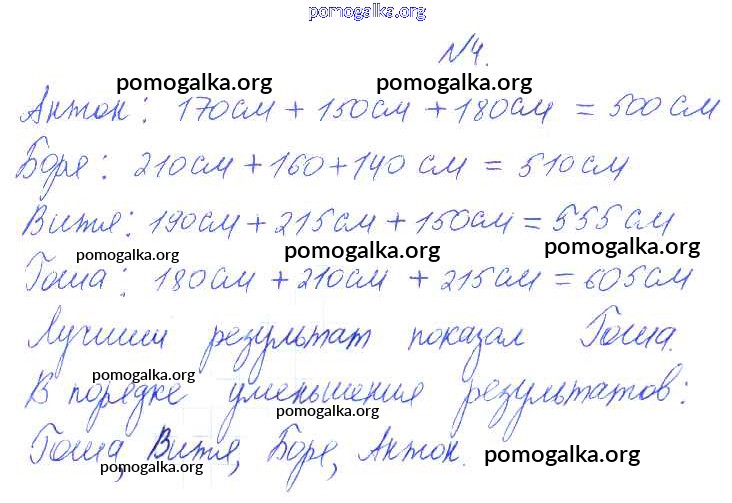 pomogalka.org
№4.
pomogalka.org pomogalka.org
Антон: 170см + 150см + 180см = 500см
Боря: 210см + 160 + 140 см = 510см
Витя: 190см + 215см + 150см = 555см
pomogalka.org pomogalka.org pomogalka.org
Гоша: 180см + 210см + 215см = 605см
Лучший результат показал Гоша.
pomogalka.org
В порядке уменьшения результатов:
pomogalka.org
Гоша, Витя, Боря, Антон.
pomogalka.org pomogalka.org